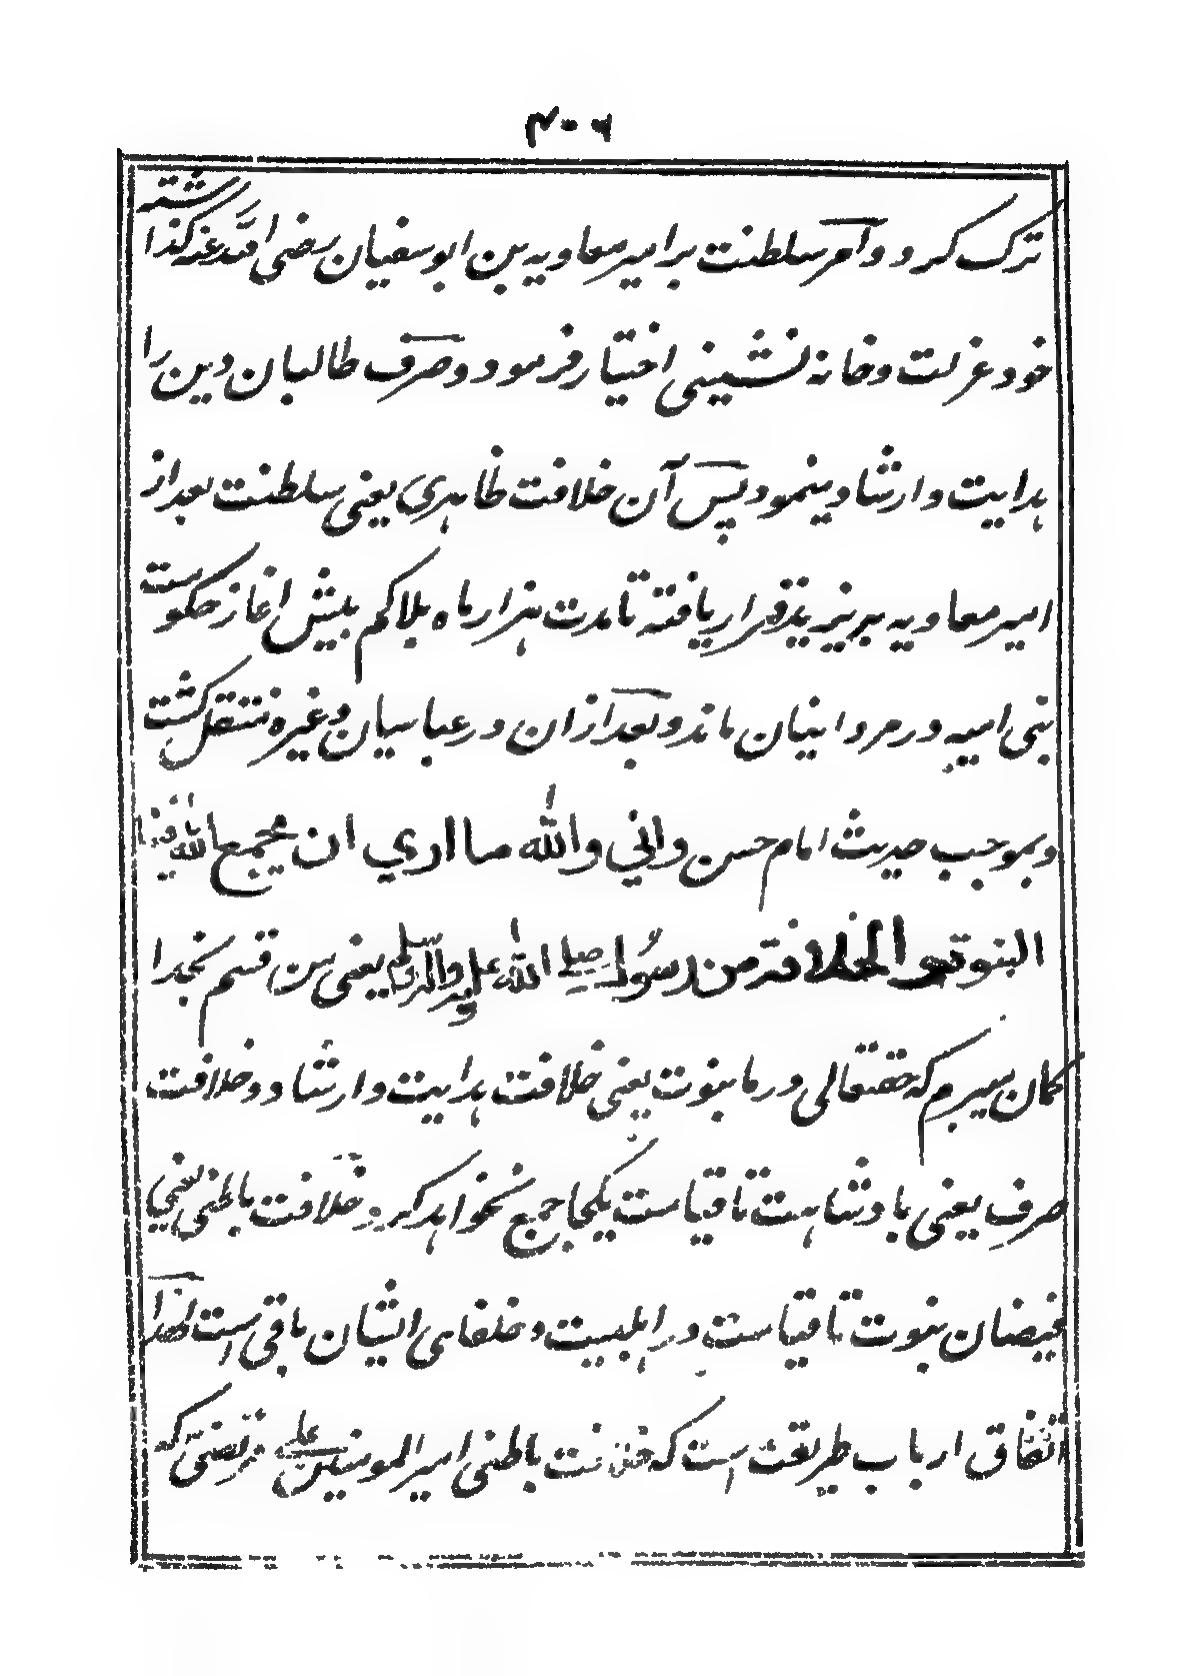 ۴۰۶
ترک کرد و امر سلطنت بر امیر معاویه بن ابو سفیان رضی الله عنه گذاشته
خود عزلت و خانه نشینی اختیار فرمود و صرف طالبان دین را
هدایت و ارشاد مینمود پس آن خلافت ظاهری یعنی سلطنت بعد از
امیر معاویه بر یزید قرار یافته تا مدت هزار ماه بلا کم بیش اغاز حکومت
بنی امیه در مروانیان ماند و بعد ازان در عباسیان و غیره منتقل گشت
و بموجب حدیث امام حسن واني والله ما ادري ان یجمع الله فینا
النبوة والخلافة من رسول الله صلی الله علیه واله وسلم یعنی من قسم بخدا
گمان میبرم که حقتعالی در ما نبوت یعنی خلافت هدایت و ارشاد و خلافت
صرف یعنی بادشاهت تا قیامت یکجا جمع نخواهد کرد و خلافت باطنی یعنی
فیضان نبوت تا قیامت در اهلبیت و خلفای ایشان باقی است لهذا
اتفاق ارباب طریقت است که خلافت باطنی امیر المومنین علی مرتضی که